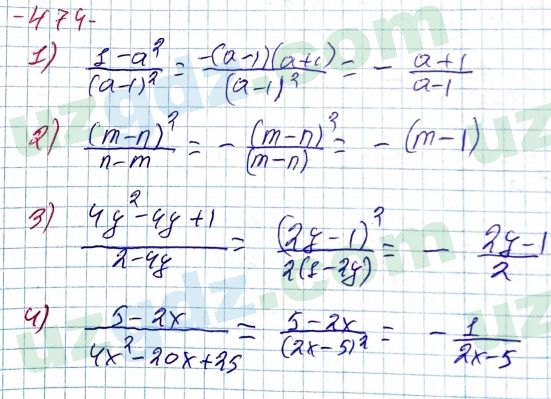 -474-
1) (1-a²)/(a-1)² = -(a-1)(a+1)/(a-1)² = - (a+1)/(a-1)
2) (m-n)²/(n-m) = - (m-n)²/(m-n) = - (m-1)
3) (4y²-4y+1)/(2-4y) = (2y-1)²/2(1-2y) = - (2y-1)/2
4) (5-2x)/(4x²-20x+25) = (5-2x)/(2x-5)² = - 1/(2x-5)